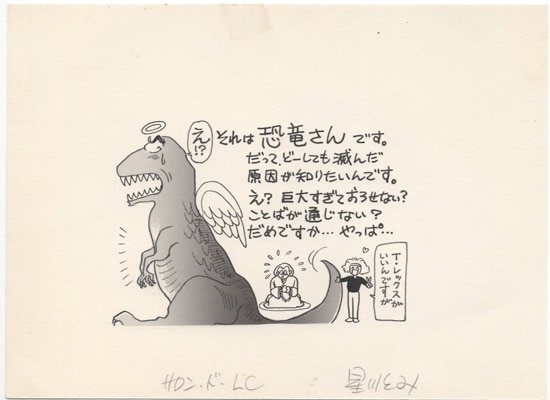 え!?
それは恐竜さんです。
だって、どーしても滅んだ
原因が知りたいんです。
え?巨大すぎておろせない?
ことばが通じない?
だめですか…やっぱ…
T・レックスが
いいんですが
サロン・ド・LC